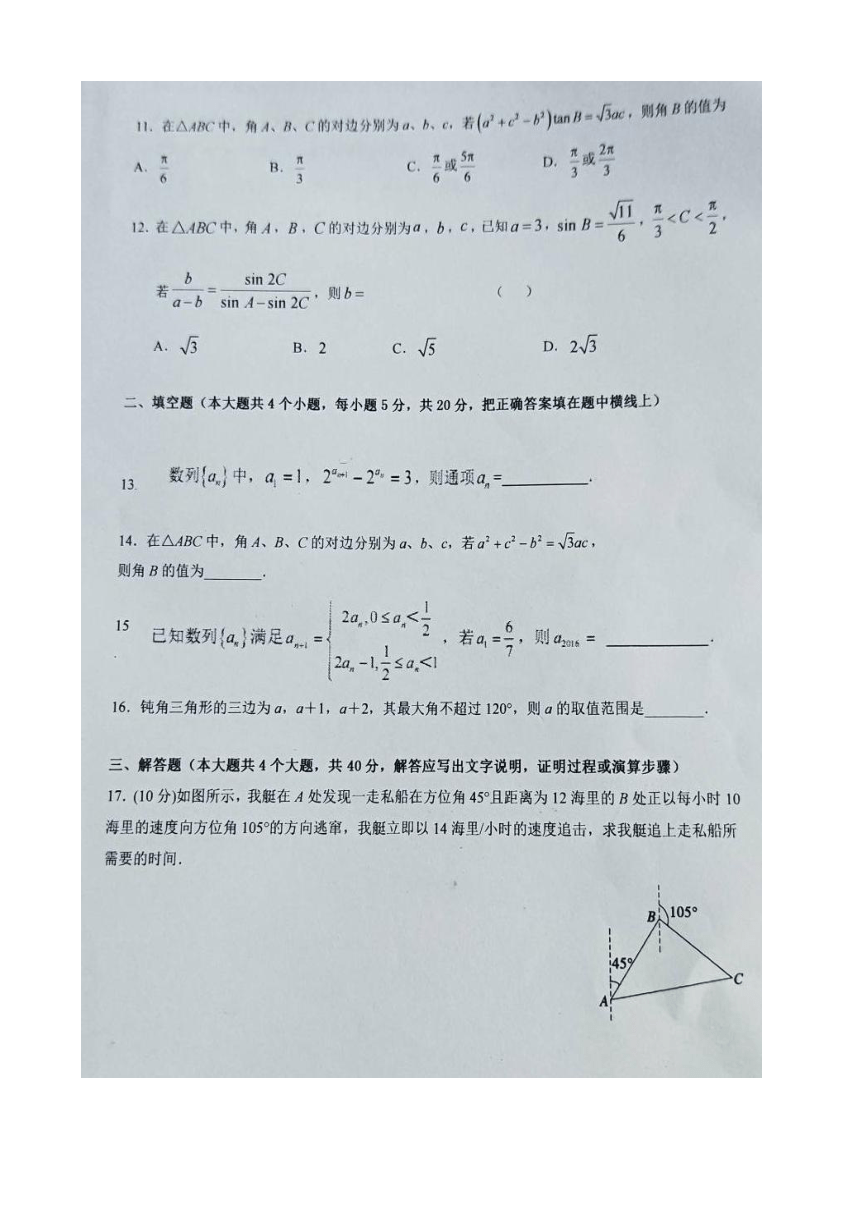 11. 在△ABC中,角A、B、C的对边分别为a、b、c,若(a²+c²-b²)tan B=√3ac,则角B的值为
A. π/6 B. π/3 C. π/6或5π/6 D. π/3或2π/3
12. 在△ABC中,角A,B,C的对边分别为a,b,c,已知a=3,sin B=√11/6,π/3<C<π/2,
若b/(a-b)=sin 2C/(sin A-sin 2C),则b= ( )
A. √3 B. 2 C. √5 D. 2√3
二、填空题(本大题共4个小题,每小题5分,共20分,把正确答案填在题中横线上)
13. 数列{aₙ}中,a₁=1,2^(aₙ₊₁)-2^(aₙ)=3,则通项aₙ=________.
14. 在△ABC中,角A、B、C的对边分别为a、b、c,若a²+c²-b²=√3ac,
则角B的值为______.
15 已知数列{aₙ}满足aₙ₊₁={2aₙ,0≤aₙ<1/2 2aₙ-1,1/2≤aₙ<1,若a₁=6/7,则a₂₀₁₆=________.
16. 钝角三角形的三边为a,a+1,a+2,其最大角不超过120°,则a的取值范围是______.
三、解答题(本大题共4个大题,共40分,解答应写出文字说明,证明过程或演算步骤)
17. (10分)如图所示,我艇在A处发现一走私船在方位角45°且距离为12海里的B处正以每小时10
海里的速度向方位角105°的方向逃窜,我艇立即以14海里/小时的速度追击,求我艇追上走私船所
需要的时间.
B 105°
45°
C
A